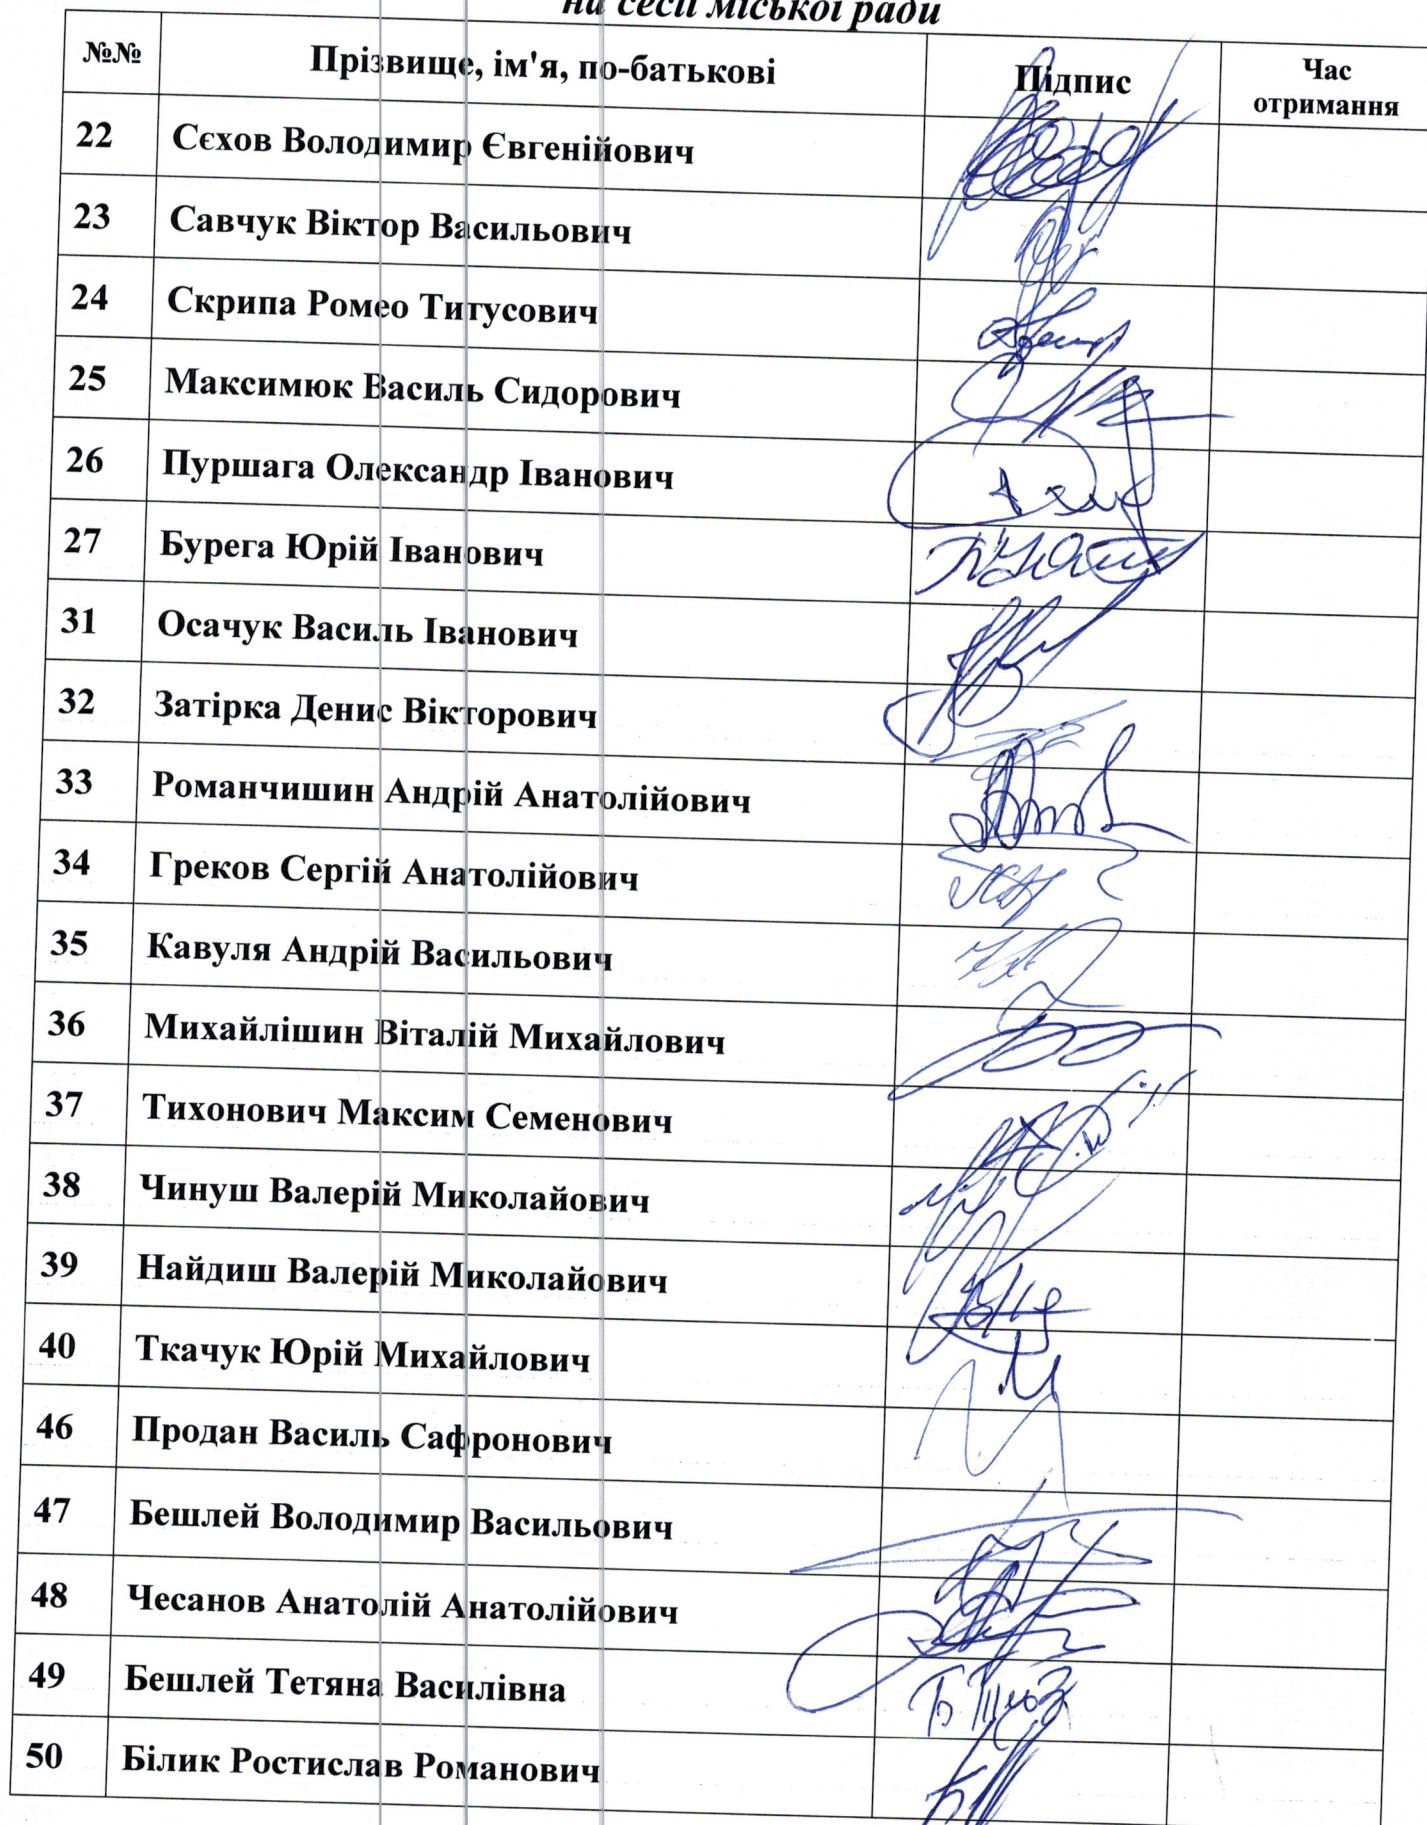 на сесії міської ради
№№ Прізвище, ім'я, по-батькові Підпис Час отримання
22 Сєхов Володимир Євгенійович
23 Савчук Віктор Васильович
24 Скрипа Ромео Титусович
25 Максимюк Василь Сидорович
26 Пуршага Олександр Іванович
27 Бурега Юрій Іванович
31 Осачук Василь Іванович
32 Затірка Денис Вікторович
33 Романчишин Андрій Анатолійович
34 Греков Сергій Анатолійович
35 Кавуля Андрій Васильович
36 Михайлішин Віталій Михайлович
37 Тихонович Максим Семенович
38 Чинуш Валерій Миколайович
39 Найдиш Валерій Миколайович
40 Ткачук Юрій Михайлович
46 Продан Василь Сафронович
47 Бешлей Володимир Васильович
48 Чесанов Анатолій Анатолійович
49 Бешлей Тетяна Василівна
50 Білик Ростислав Романович